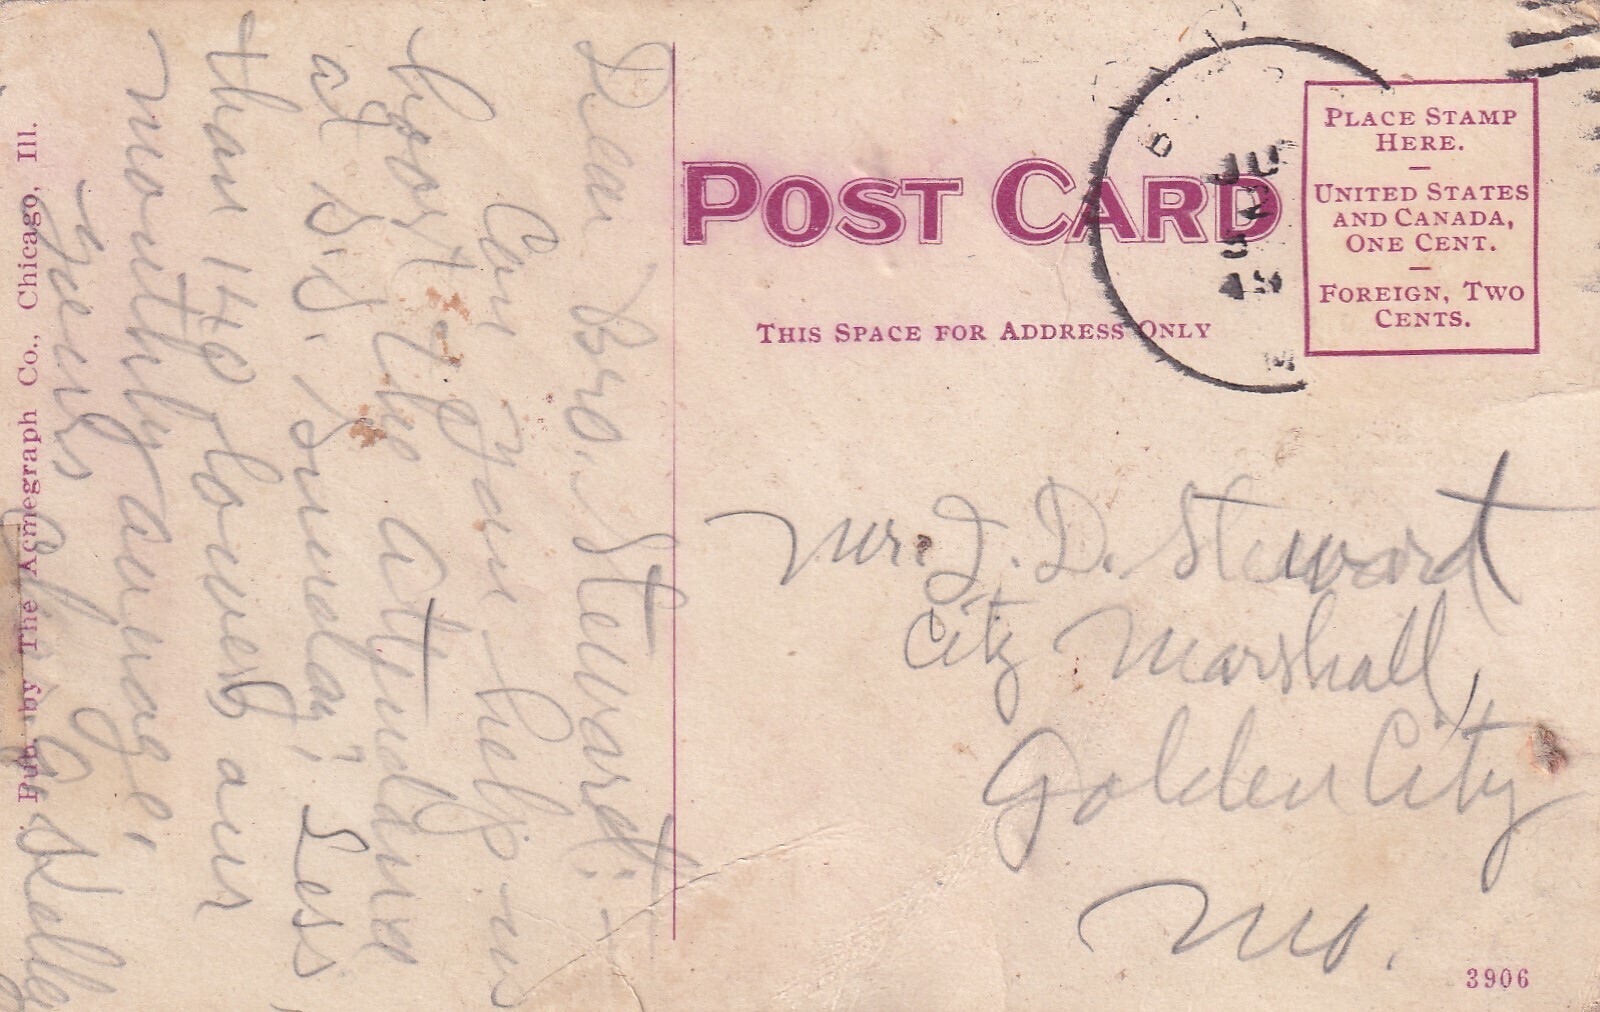 Dear Bro. Stewart:-
Can you help us
boost the attendance
at S. S. Sunday? Less
than 140 lowers our
monthly average.
Yours
Pub. by The Acmegraph Co., Chicago, Ill.
POST CARD
THIS SPACE FOR ADDRESS ONLY
PLACE STAMP
HERE.
UNITED STATES
AND CANADA,
ONE CENT.
FOREIGN, TWO
CENTS.
JU
Mr. J. D. Steward
City Marshall,
Golden City
Mo.
3906